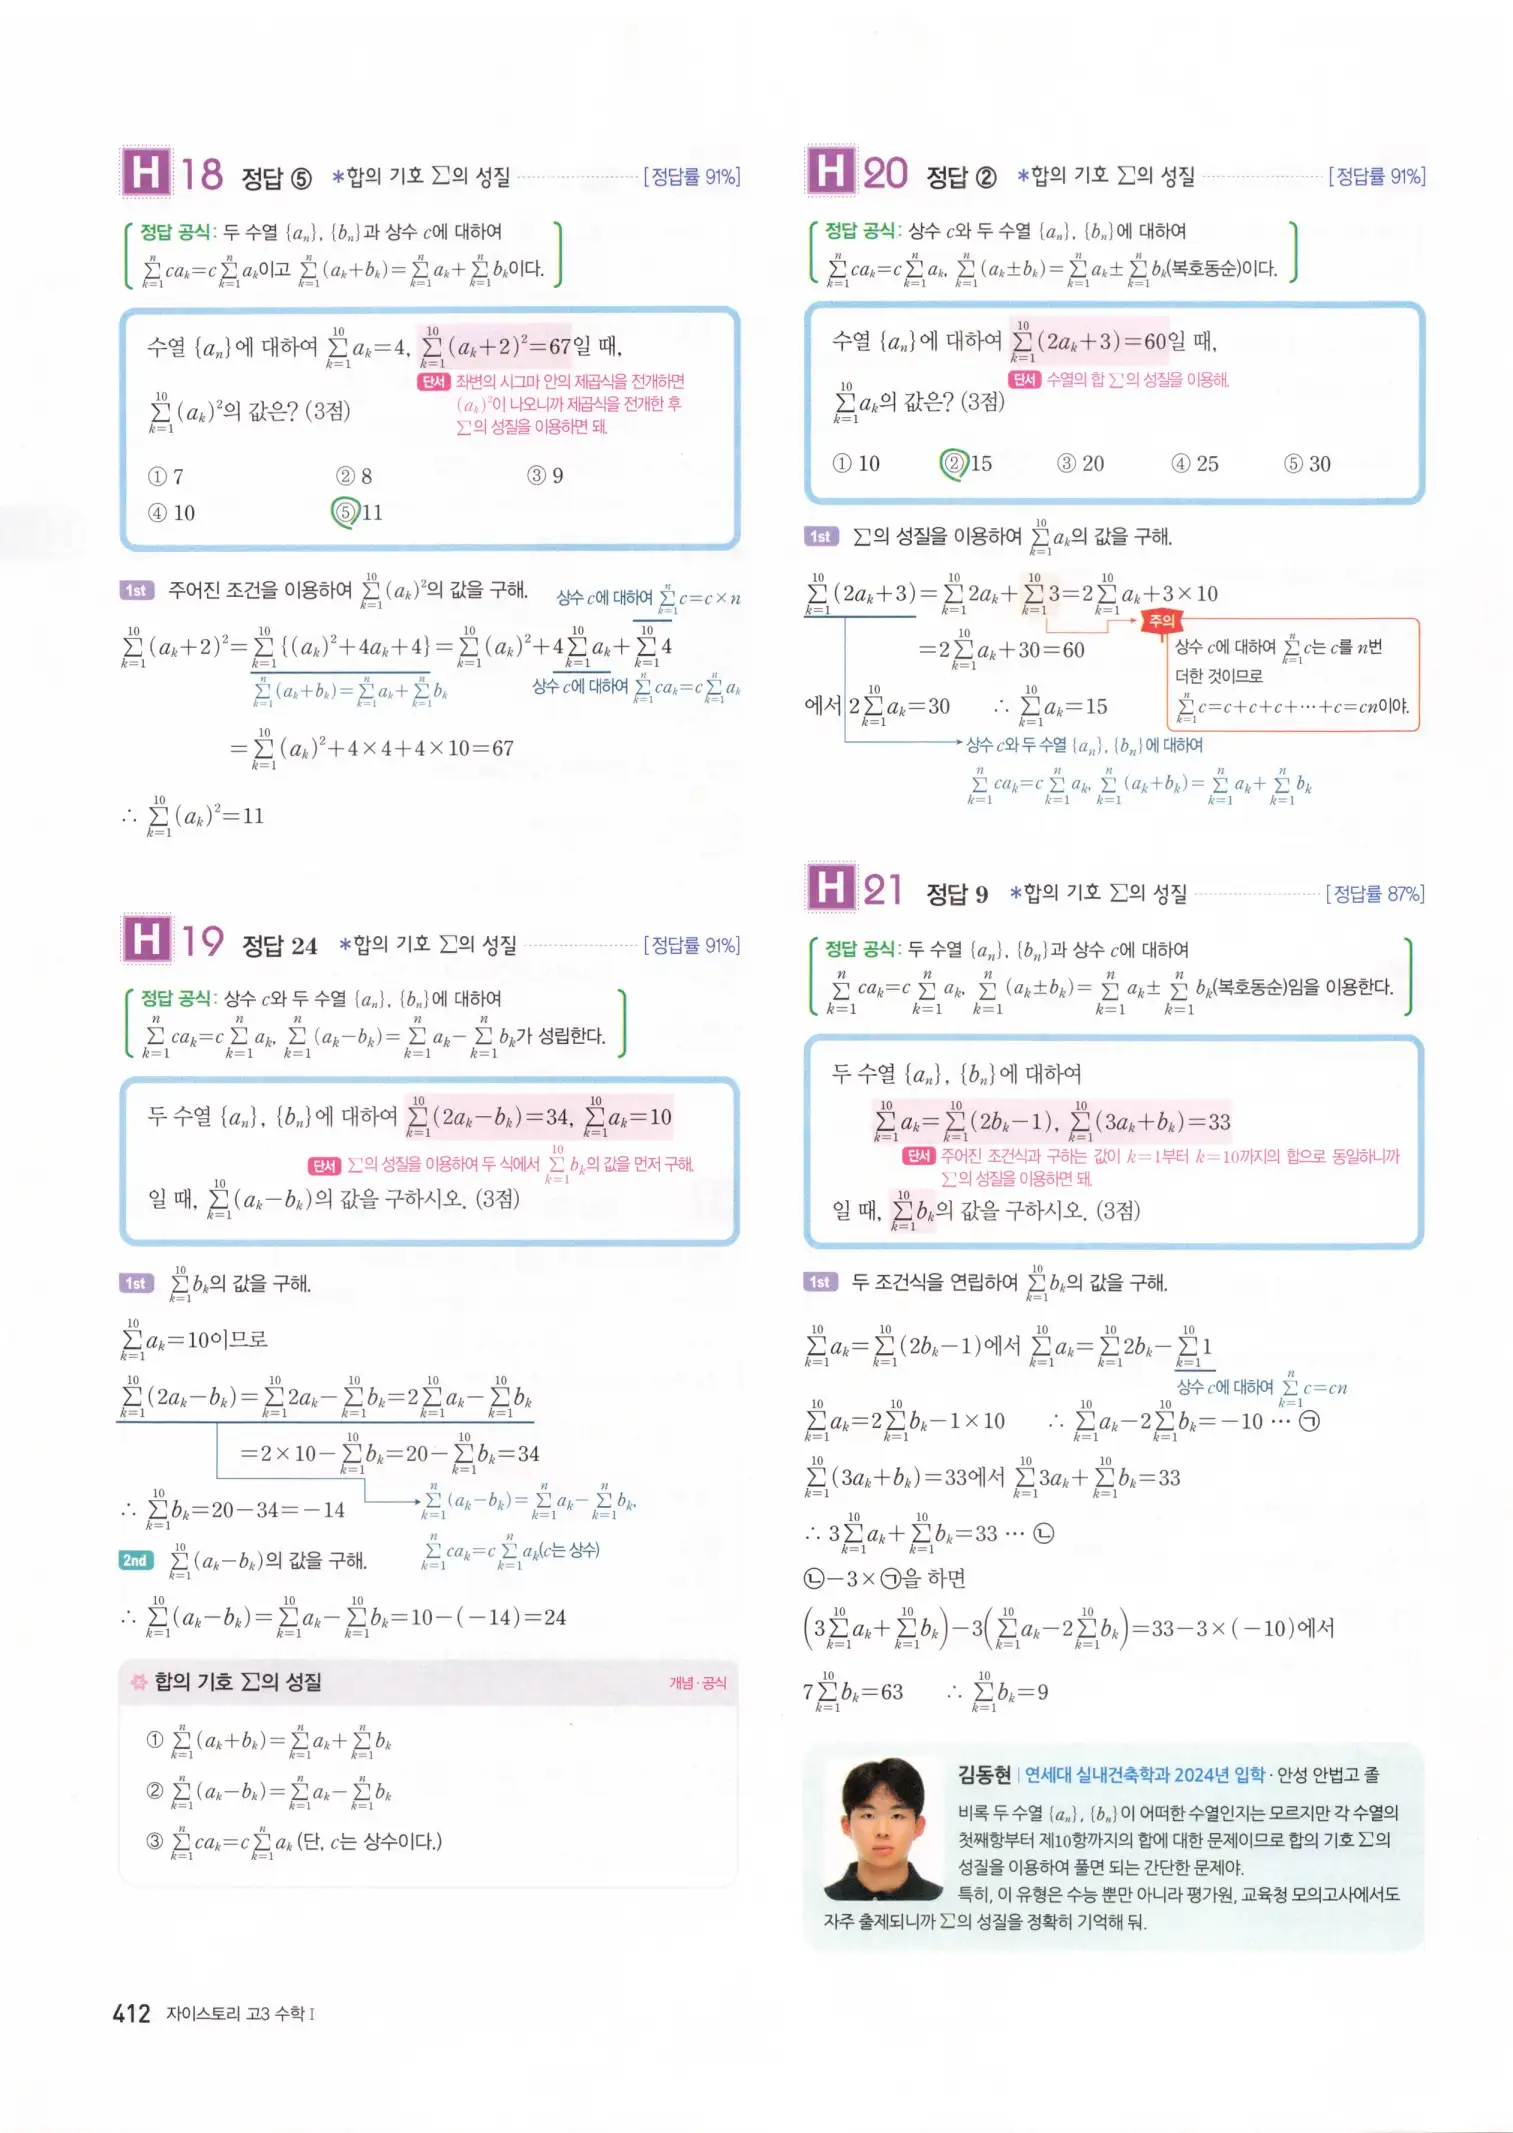 H 18 정답 ⑤ *합의 기호 ∑의 성질 [정답률 91%]
정답 공식: 두 수열 {aₙ}, {bₙ}과 상수 c에 대하여
∑_{k=1}^{n} caₖ=c∑_{k=1}^{n} aₖ이고 ∑_{k=1}^{n} (aₖ+bₖ)=∑_{k=1}^{n} aₖ+∑_{k=1}^{n} bₖ이다.
수열 {aₙ}에 대하여 ∑_{k=1}^{10} aₖ=4, ∑_{k=1}^{10} (aₖ+2)²=67일 때,
단서 좌변의 시그마 안의 제곱식을 전개하면
(aₖ)²이 나오니까 제곱식을 전개한 후
∑의 성질을 이용하면 돼.
∑_{k=1}^{10} (aₖ)²의 값은? (3점)
① 7 ② 8 ③ 9
④ 10 ⑤ 11
1st 주어진 조건을 이용하여 ∑_{k=1}^{10} (aₖ)²의 값을 구해.
상수 c에 대하여 ∑_{k=1}^{n} c=c×n
∑_{k=1}^{10} (aₖ+2)²=∑_{k=1}^{10} {(aₖ)²+4aₖ+4}=∑_{k=1}^{10} (aₖ)²+4∑_{k=1}^{10} aₖ+∑_{k=1}^{10} 4
∑_{k=1}^{n} (aₖ+bₖ)=∑_{k=1}^{n} aₖ+∑_{k=1}^{n} bₖ
상수 c에 대하여 ∑_{k=1}^{n} caₖ=c∑_{k=1}^{n} aₖ
=∑_{k=1}^{10} (aₖ)²+4×4+4×10=67
∴ ∑_{k=1}^{10} (aₖ)²=11
H 19 정답 24 *합의 기호 ∑의 성질 [정답률 91%]
정답 공식: 상수 c와 두 수열 {aₙ}, {bₙ}에 대하여
∑_{k=1}^{n} caₖ=c∑_{k=1}^{n} aₖ, ∑_{k=1}^{n} (aₖ-bₖ)=∑_{k=1}^{n} aₖ-∑_{k=1}^{n} bₖ가 성립한다.
두 수열 {aₙ}, {bₙ}에 대하여 ∑_{k=1}^{10} (2aₖ-bₖ)=34, ∑_{k=1}^{10} aₖ=10
단서 ∑의 성질을 이용하여 두 식에서 ∑_{k=1}^{10} bₖ의 값을 먼저 구해.
일 때, ∑_{k=1}^{10} (aₖ-bₖ)의 값을 구하시오. (3점)
1st ∑_{k=1}^{10} bₖ의 값을 구해.
∑_{k=1}^{10} aₖ=10이므로
∑_{k=1}^{10} (2aₖ-bₖ)=∑_{k=1}^{10} 2aₖ-∑_{k=1}^{10} bₖ=2∑_{k=1}^{10} aₖ-∑_{k=1}^{10} bₖ
=2×10-∑_{k=1}^{10} bₖ=20-∑_{k=1}^{10} bₖ=34
∴ ∑_{k=1}^{10} bₖ=20-34=-14
∑_{k=1}^{n} (aₖ-bₖ)=∑_{k=1}^{n} aₖ-∑_{k=1}^{n} bₖ,
∑_{k=1}^{n} caₖ=c∑_{k=1}^{n} aₖ(c는 상수)
2nd ∑_{k=1}^{10} (aₖ-bₖ)의 값을 구해.
∴ ∑_{k=1}^{10} (aₖ-bₖ)=∑_{k=1}^{10} aₖ-∑_{k=1}^{10} bₖ=10-(-14)=24
합의 기호 ∑의 성질 개념·공식
① ∑_{k=1}^{n} (aₖ+bₖ)=∑_{k=1}^{n} aₖ+∑_{k=1}^{n} bₖ
② ∑_{k=1}^{n} (aₖ-bₖ)=∑_{k=1}^{n} aₖ-∑_{k=1}^{n} bₖ
③ ∑_{k=1}^{n} caₖ=c∑_{k=1}^{n} aₖ (단, c는 상수이다.)
H 20 정답 ② *합의 기호 ∑의 성질 [정답률 91%]
정답 공식: 상수 c와 두 수열 {aₙ}, {bₙ}에 대하여
∑_{k=1}^{n} caₖ=c∑_{k=1}^{n} aₖ, ∑_{k=1}^{n} (aₖ±bₖ)=∑_{k=1}^{n} aₖ±∑_{k=1}^{n} bₖ(복호동순)이다.
수열 {aₙ}에 대하여 ∑_{k=1}^{10} (2aₖ+3)=60일 때,
단서 수열의 합 ∑의 성질을 이용해.
∑_{k=1}^{10} aₖ의 값은? (3점)
① 10 ② 15 ③ 20 ④ 25 ⑤ 30
1st ∑의 성질을 이용하여 ∑_{k=1}^{10} aₖ의 값을 구해.
∑_{k=1}^{10} (2aₖ+3)=∑_{k=1}^{10} 2aₖ+∑_{k=1}^{10} 3=2∑_{k=1}^{10} aₖ+3×10
=2∑_{k=1}^{10} aₖ+30=60
에서 2∑_{k=1}^{10} aₖ=30 ∴ ∑_{k=1}^{10} aₖ=15
주의
상수 c에 대하여 ∑_{k=1}^{n} c는 c를 n번
더한 것이므로
∑_{k=1}^{n} c=c+c+c+⋯+c=cn이야.
상수 c와 두 수열 {aₙ}, {bₙ}에 대하여
∑_{k=1}^{n} caₖ=c∑_{k=1}^{n} aₖ, ∑_{k=1}^{n} (aₖ+bₖ)=∑_{k=1}^{n} aₖ+∑_{k=1}^{n} bₖ
H 21 정답 9 *합의 기호 ∑의 성질 [정답률 87%]
정답 공식: 두 수열 {aₙ}, {bₙ}과 상수 c에 대하여
∑_{k=1}^{n} caₖ=c∑_{k=1}^{n} aₖ, ∑_{k=1}^{n} (aₖ±bₖ)=∑_{k=1}^{n} aₖ±∑_{k=1}^{n} bₖ(복호동순)임을 이용한다.
두 수열 {aₙ}, {bₙ}에 대하여
∑_{k=1}^{10} aₖ=∑_{k=1}^{10} (2bₖ-1), ∑_{k=1}^{10} (3aₖ+bₖ)=33
단서 주어진 조건식과 구하는 값이 k=1부터 k=10까지의 합으로 동일하니까
∑의 성질을 이용하면 돼.
일 때, ∑_{k=1}^{10} bₖ의 값을 구하시오. (3점)
1st 두 조건식을 연립하여 ∑_{k=1}^{10} bₖ의 값을 구해.
∑_{k=1}^{10} aₖ=∑_{k=1}^{10} (2bₖ-1)에서 ∑_{k=1}^{10} aₖ=∑_{k=1}^{10} 2bₖ-∑_{k=1}^{10} 1
상수 c에 대하여 ∑_{k=1}^{n} c=cn
∑_{k=1}^{10} aₖ=2∑_{k=1}^{10} bₖ-1×10 ∴ ∑_{k=1}^{10} aₖ-2∑_{k=1}^{10} bₖ=-10 ⋯ ㉠
∑_{k=1}^{10} (3aₖ+bₖ)=33에서 ∑_{k=1}^{10} 3aₖ+∑_{k=1}^{10} bₖ=33
∴ 3∑_{k=1}^{10} aₖ+∑_{k=1}^{10} bₖ=33 ⋯ ㉡
㉡-3×㉠을 하면
(3∑_{k=1}^{10} aₖ+∑_{k=1}^{10} bₖ)-3(∑_{k=1}^{10} aₖ-2∑_{k=1}^{10} bₖ)=33-3×(-10)에서
7∑_{k=1}^{10} bₖ=63 ∴ ∑_{k=1}^{10} bₖ=9
김동현 | 연세대 실내건축학과 2024년 입학 · 안성 안법고 졸
비록 두 수열 {aₙ}, {bₙ}이 어떠한 수열인지는 모르지만 각 수열의
첫째항부터 제10항까지의 합에 대한 문제이므로 합의 기호 ∑의
성질을 이용하여 풀면 되는 간단한 문제야.
특히, 이 유형은 수능 뿐만 아니라 평가원, 교육청 모의고사에서도
자주 출제되니까 ∑의 성질을 정확히 기억해 둬.
412 자이스토리 고3 수학 I